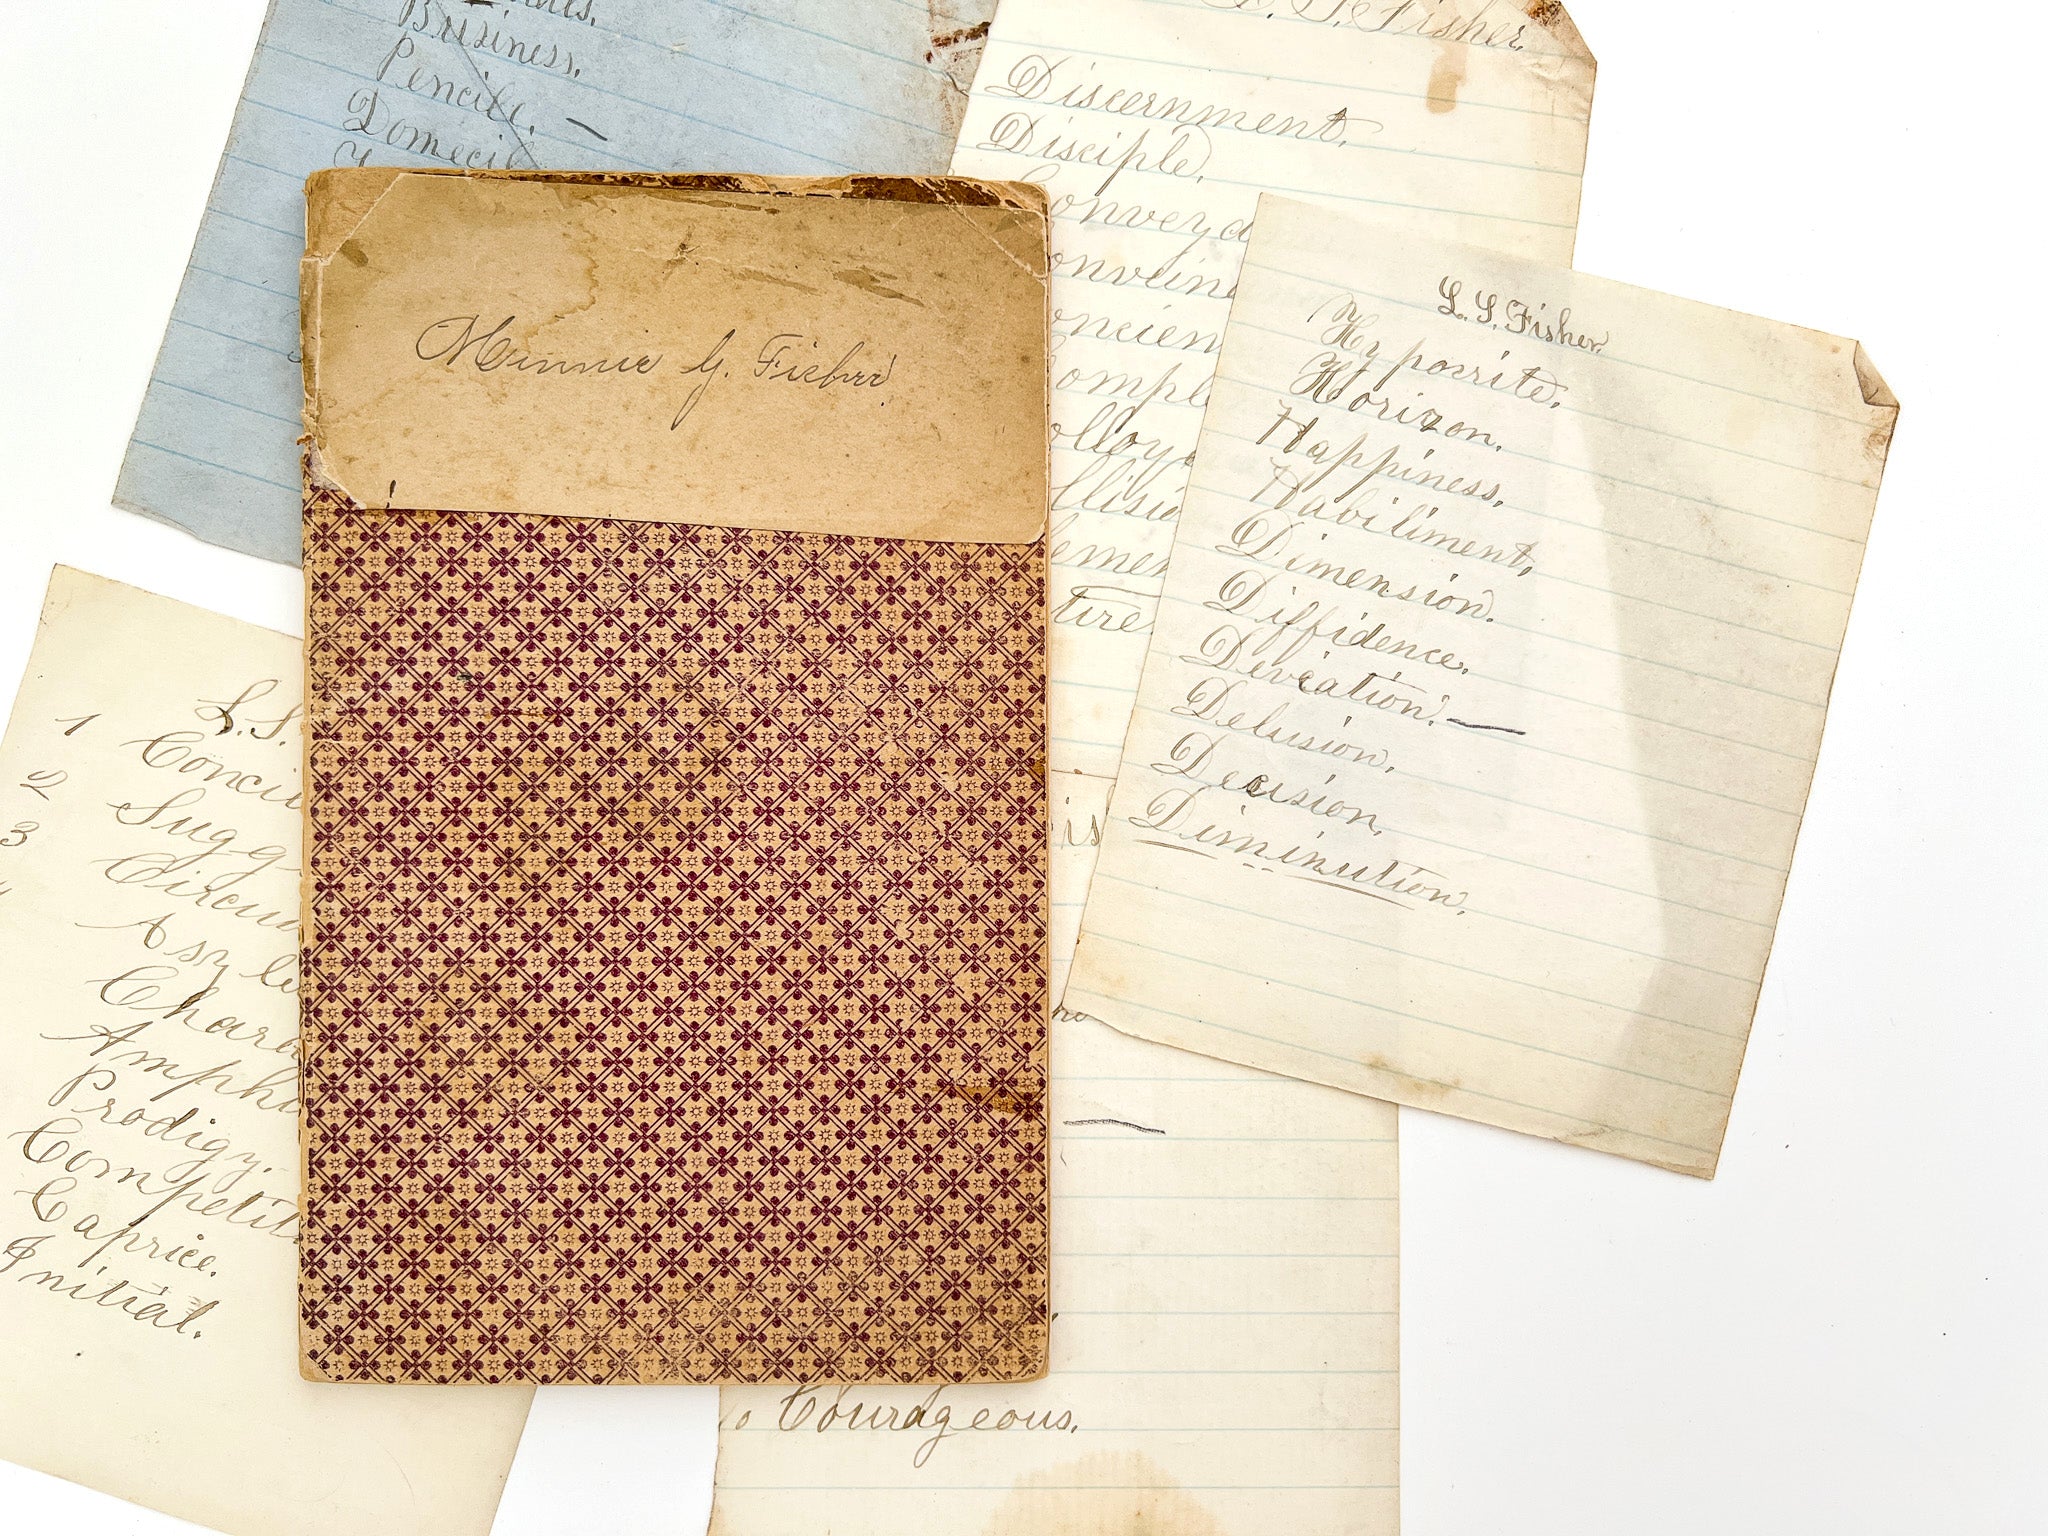 Brisiness.
Pencile. —
Domecil
L. S. Fisher.
Discernment.
Disciple.
Conveya
onveine
oncien
ompl
olloy
llisi
emen
tire
Minnie G. Fisher
L. S. Fisher.
Hypocrite.
Horizon.
Happiness.
Habiliment.
Dimension.
Diffidence.
Deviation. —
Delusion.
Decision.
Diminution.
L. S.
1 Concil
2 Sugg
3 Circum
Asyle
Chara
Amphi
Prodigy.
Competit
Caprice.
Initial.
is
10 Courageous.